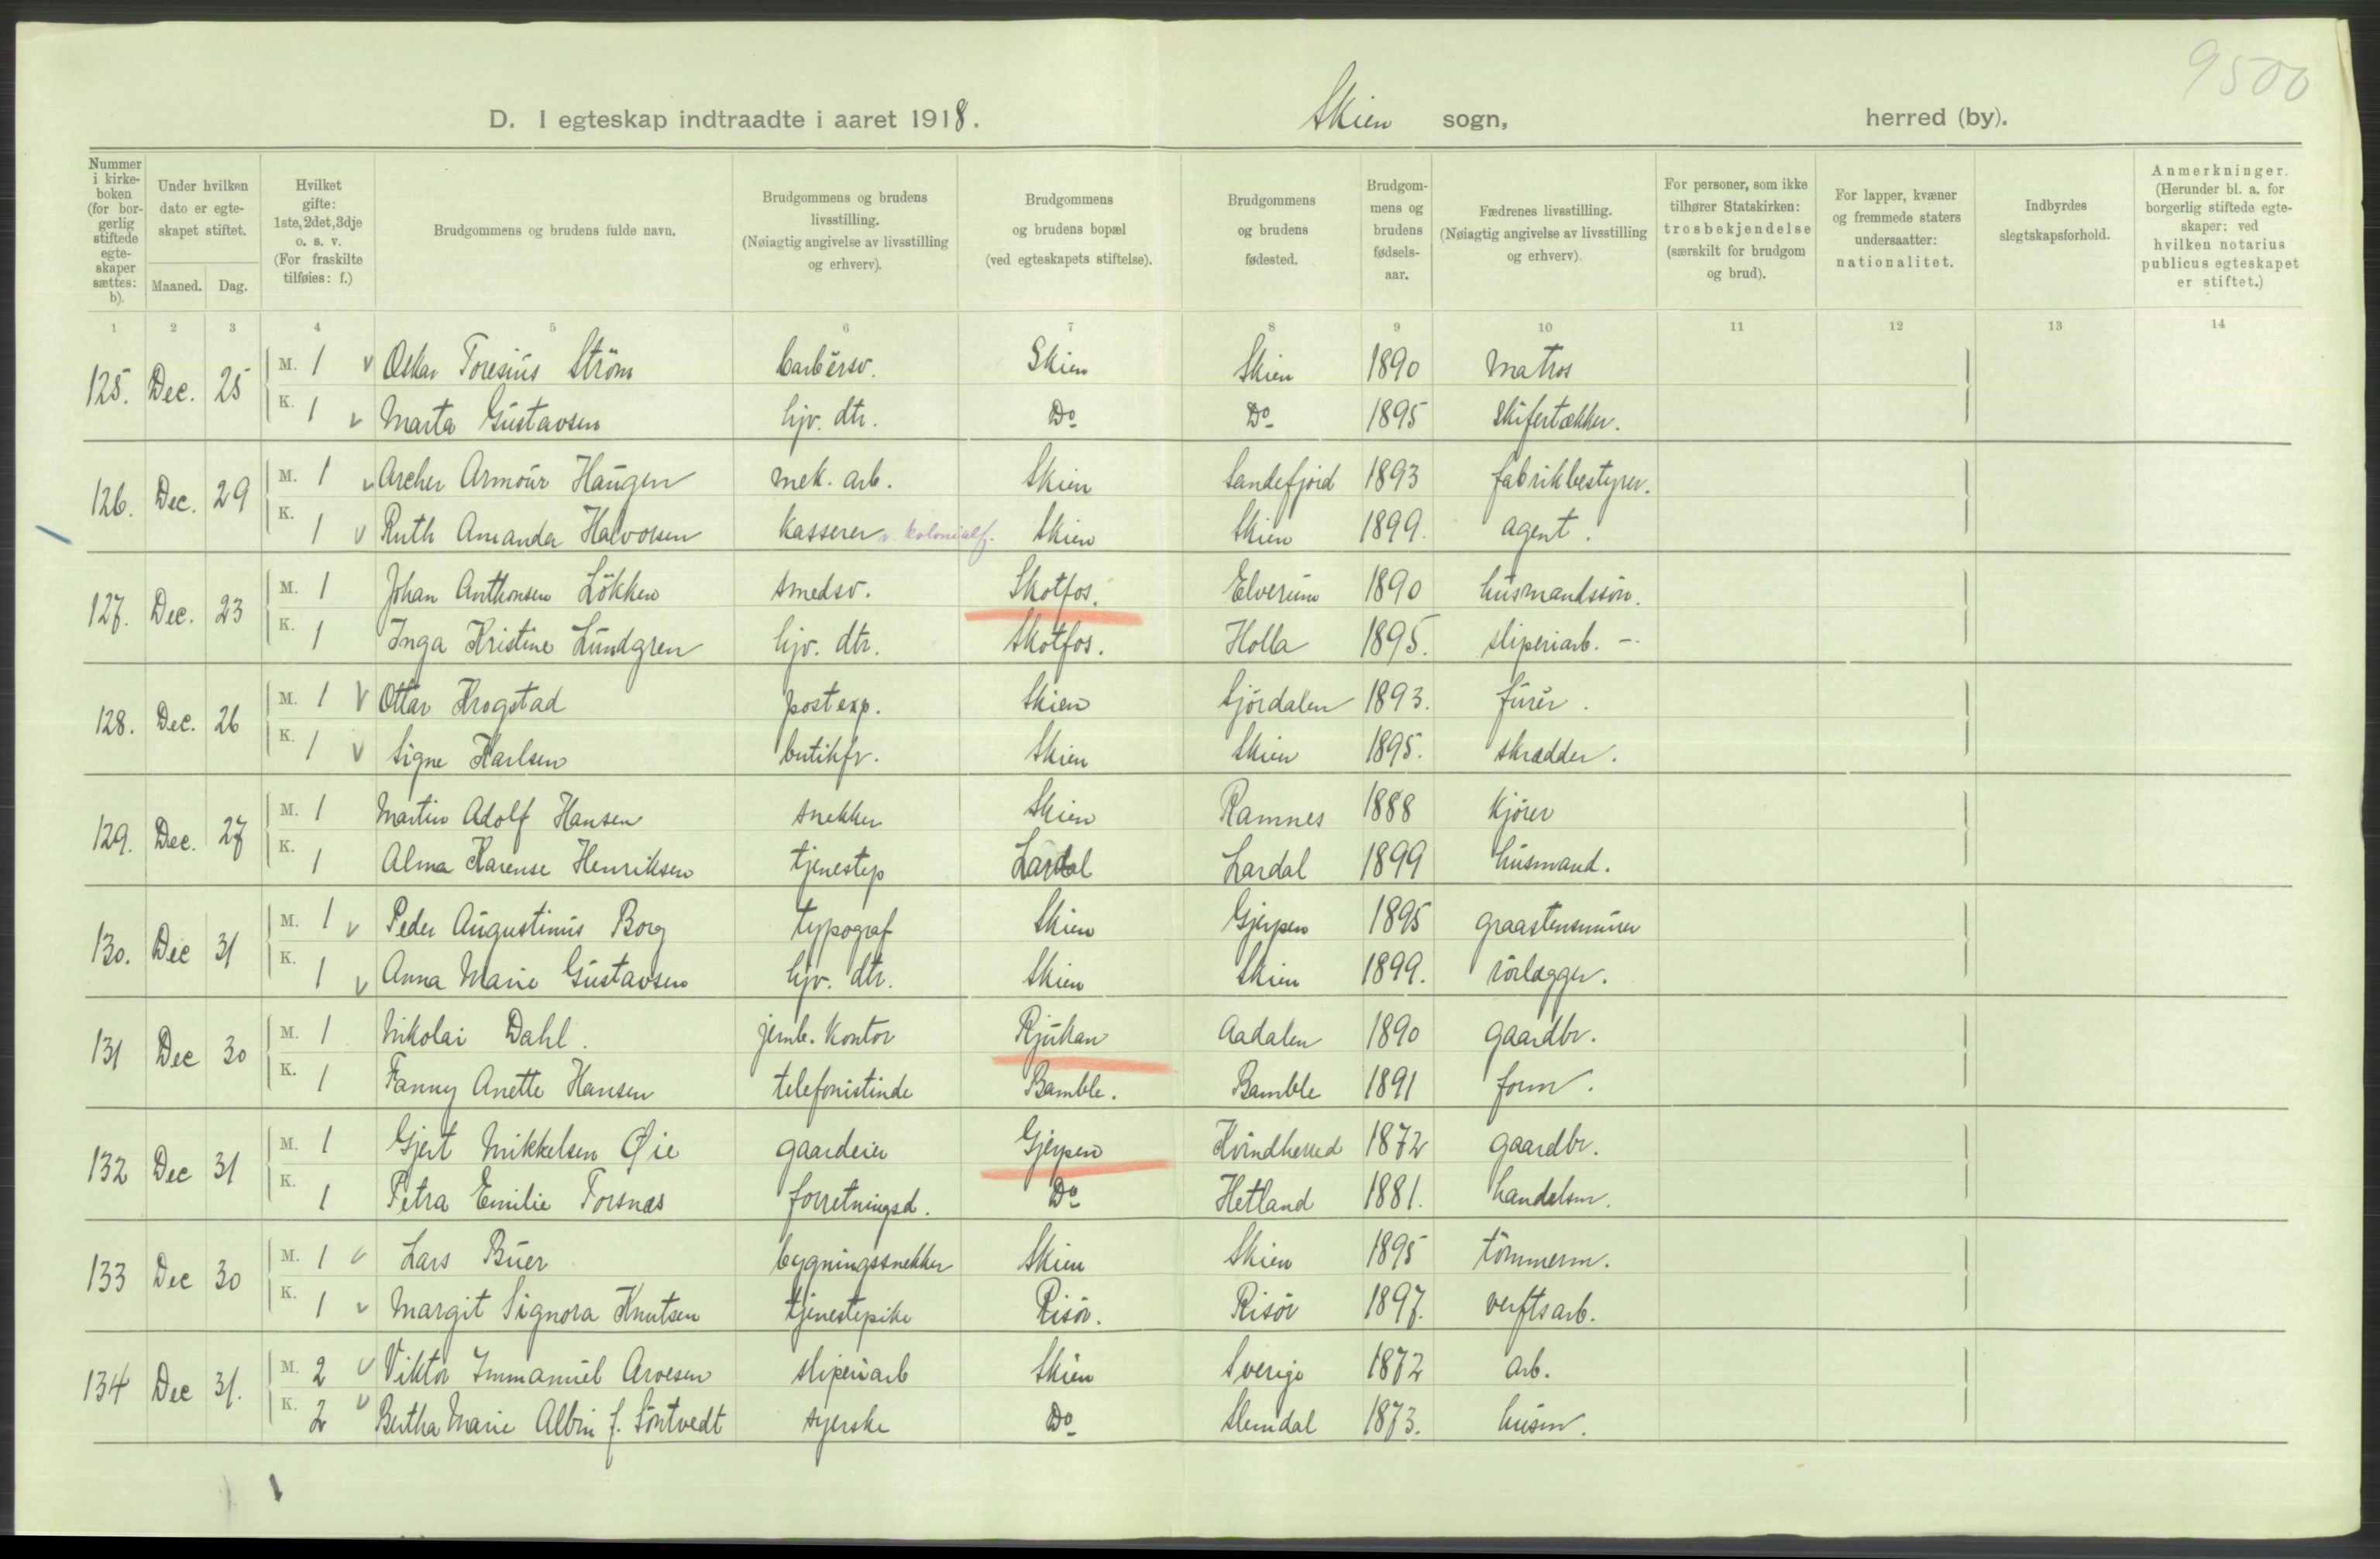 9500
D. I egteskap indtraadte i aaret 1918. Skien sogn, herred (by).
Nummer i kirke-boken (for bor-gerlig stiftede egte-skaper sættes: b).
Under hvilken dato er egte-skapet stiftet.
Maaned. Dag.
Hvilket gifte: 1ste, 2det, 3dje o. s. v. (For fraskilte tilføies: f.)
Brudgommens og brudens fulde navn.
Brudgommens og brudens livsstilling. (Nøiagtig angivelse av livsstilling og erhverv).
Brudgommens og brudens bopæl (ved egteskapets stiftelse).
Brudgommens og brudens fødested.
Brudgom-mens og brudens fødsels-aar.
Fædrenes livsstilling. (Nøiagtig angivelse av livsstilling og erhverv).
For personer, som ikke tilhører Statskirken: trosbekjendelse (særskilt for brudgom og brud).
For lapper, kvæner og fremmede staters undersaatter: nationalitet.
Indbyrdes slegtskapsforhold.
Anmerkninger. (Herunder bl. a. for borgerlig stiftede egte-skaper: ved hvilken notarius publicus egteskapet er stiftet.)
1 2 3 4 5 6 7 8 9 10 11 12 13 14
125. Dec. 25 M. 1 v Oskar Toresius Ström barbérsv. Skien Skien 1890 Matros
K. 1 v Marta Gustavsen hjv. dtr. Do Do 1895 Skifertækker.
126. Dec. 29 M. 1 v Archer Armour Haugen mek. arb. Skien Sandefjord 1893 fabrikbestyrer.
K. 1 v Ruth Amanda Halvorsen kasserer v. kolonialf. Skien Skien 1899. agent.
127. Dec. 23 M. 1 Johan Anthonsen Lökken smedsv. Skotfos. Elverum 1890 husmandssön.
K. 1 Inga Kristine Lundgren hjv. dtr. Skotfos. Holla 1895. sliperiarb. -
128. Dec. 26 M. 1 v Ottar Krogstad postexp. Skien Sjördalen 1893. furér.
K. 1 v Signe Karlsen butikfr. Skien Skien 1895. skrædder.
129. Dec. 27 M. 1 Martin Adolf Hansen snekker Skien Ramnes 1888 kjörer
K. 1 Alma Karense Henriksen tjenestep Lardal Lardal 1899 husmand.
130. Dec 31 M. 1 v Peder Augustinus Borg typograf Skien Gjerpen 1895 graastensmurer
K. 1 v Anna Marie Gustavsen hjv. dtr. Skien Skien 1899. rörlægger.
131 Dec 30 M. 1 Nikolai Dahl. jernb. kontor Rjukan Aadalen 1890 gaardbr.
K. 1 Fanny Anette Hansen telefonistinde Bamble. Bamble 1891 form.
132 Dec 31 M. 1 Gjert Mikkelsen Øie gaardeier Gjerpen Kvindherred 1872 gaardbr.
K. 1 Petra Emilie Torsnæs forretningsd. Do Hetland 1881. handelsm.
133 Dec 30 M. 1 v Lars Buer bygningssnekker Skien Skien 1895 tömmerm.
K. 1 v Margit Signora Knutsen tjenestepike Risör. Risör 1897. verftsarb.
134 Dec 31. M. 2 v Viktor Immanuel Arvesen sliperiarb Skien Sverige 1872 arb.
K. 2 v Bertha Marie Albin f. Söntvedt syerske Do Slemdal 1873. husm.